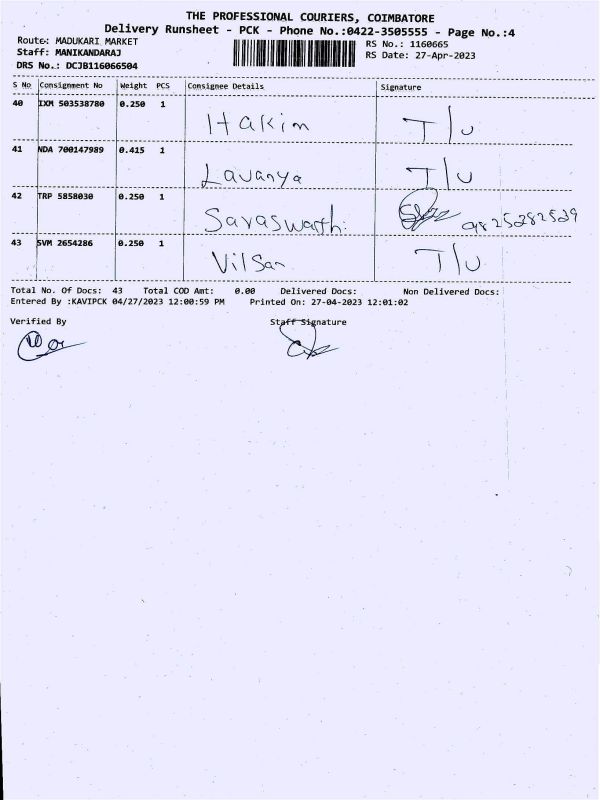 THE PROFESSIONAL COURIERS, COIMBATORE
Delivery Runsheet - PCK - Phone No.:0422-3505555 - Page No.:4
Route: MADUKARI MARKET
RS No.: 1160665
Staff: MANIKANDARAJ
RS Date: 27-Apr-2023
DRS No.: DCJB116066504
S No Consignment No Weight PCS Consignee Details Signature
40 IXM 503538780 0.250 1 Hakim T/U
41 NDA 700147989 0.415 1 Lavanya T/U
42 TRP 5858030 0.250 1 Saraswathi 9825282529
43 SVM 2654286 0.250 1 Vilsan T/U
Total No. Of Docs: 43 Total COD Amt: 0.00 Delivered Docs: Non Delivered Docs:
Entered By :KAVIPCK 04/27/2023 12:00:59 PM Printed On: 27-04-2023 12:01:02
Verified By Staff Signature